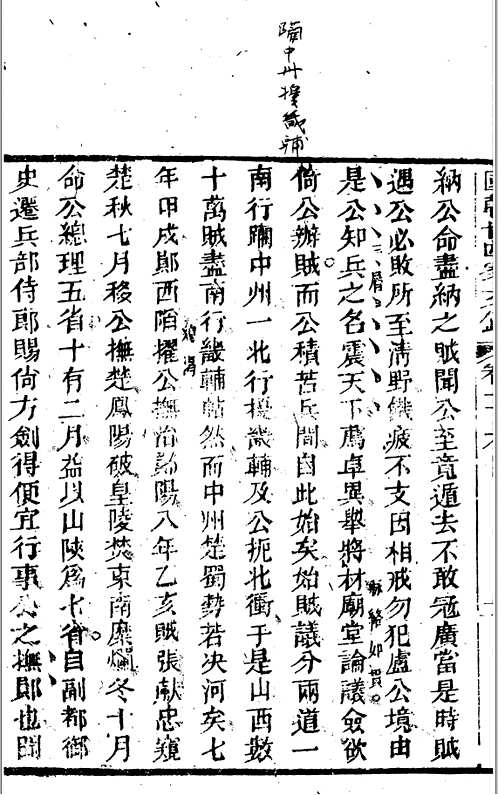 躪中州擾畿輔
國朝廿四家文鈔
納公命盡納之賊聞公至竟遁去不敢寇廣當是時賊
遇公必敗所至淸野饑疲不支因相戒勿犯盧公境由
是公知兵之名震天下薦卓異舉將材廟堂論議僉欲
脈絡如貫
倚公辦賊而公積苦兵間自此始矣始賊議分兩道一
南行躪中州一北行擾畿輔及公扼北衝于是山西數
十萬賊盡南行畿輔帖然而中州楚蜀勢若决河矣七
年甲戌鄖西陷擢公撫治鄖陽八年乙亥賊張献忠窺
楚秋七月移公撫楚鳳陽破皇陵焚東南糜爛冬十月
命公總理五省十有二月益以山陝爲七省自副都御
史遷兵部侍郎賜尙方劍得便宜行事公之撫鄖也聞